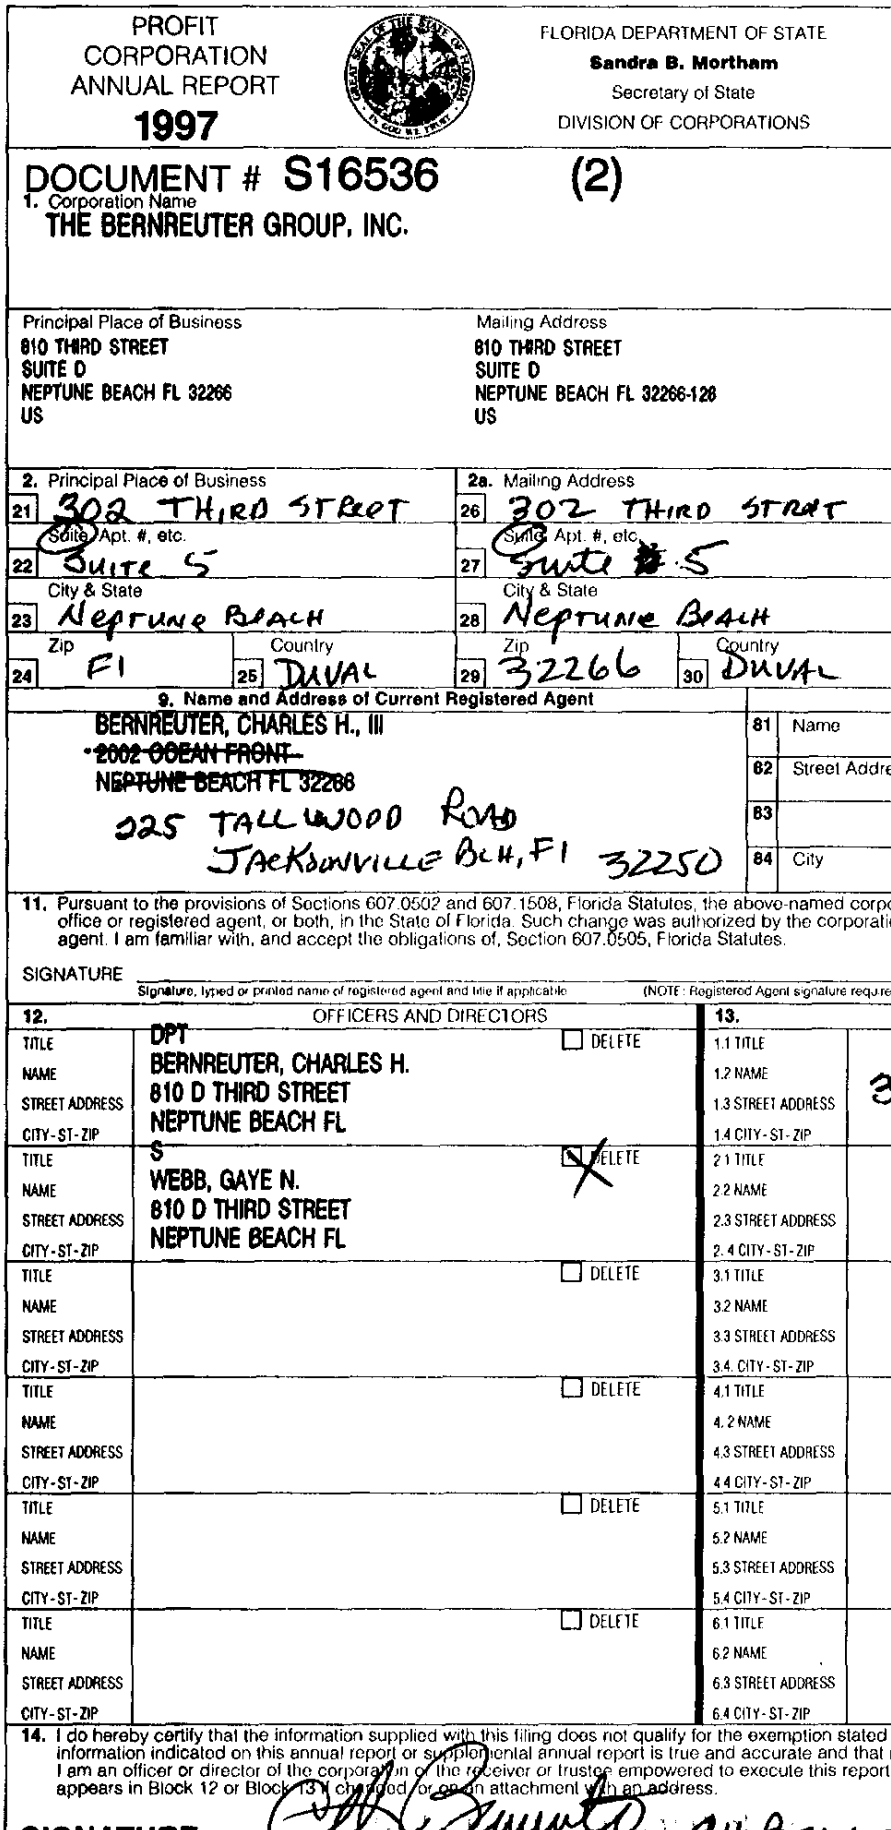 PROFIT
CORPORATION
ANNUAL REPORT
1997
GREAT SEAL OF THE STATE OF FLORIDA
IN GOD WE TRUST
FLORIDA DEPARTMENT OF STATE
Sandra B. Mortham
Secretary of State
DIVISION OF CORPORATIONS
DOCUMENT # S16536 (2)
1. Corporation Name
THE BERNREUTER GROUP, INC.
Principal Place of Business
810 THIRD STREET
SUITE D
NEPTUNE BEACH FL 32266
US
Mailing Address
810 THIRD STREET
SUITE D
NEPTUNE BEACH FL 32266-128
US
2. Principal Place of Business
21 302 THIRD STREET
Suite, Apt. #, etc.
22 Suite 5
City & State
23 Neptune Beach
Zip Country
24 Fl 25 DUVAL
2a. Mailing Address
26 302 THIRD STREET
Suite, Apt. #, etc.
27 Suite # 5
City & State
28 Neptune Beach
Zip Country
29 32266 30 DUVAL
9. Name and Address of Current Registered Agent
BERNREUTER, CHARLES H., III
2002 OCEAN FRONT
NEPTUNE BEACH FL 32266
225 TALLWOOD ROAD
JACKSONVILLE BCH, Fl 32250
81 Name
82 Street Addre
83
84 City
11. Pursuant to the provisions of Sections 607.0502 and 607.1508, Florida Statutes, the above-named corpo
office or registered agent, or both, in the State of Florida. Such change was authorized by the corporati
agent. I am familiar with, and accept the obligations of, Section 607.0505, Florida Statutes.
SIGNATURE
Signature, typed or printed name of registered agent and title if applicable (NOTE: Registered Agent signature require
12. OFFICERS AND DIRECTORS 13.
TITLE DPT DELETE 1.1 TITLE
NAME BERNREUTER, CHARLES H. 1.2 NAME
STREET ADDRESS 810 D THIRD STREET 1.3 STREET ADDRESS 3
CITY-ST-ZIP NEPTUNE BEACH FL 1.4 CITY-ST-ZIP
TITLE S DELETE 2.1 TITLE
NAME WEBB, GAYE N. 2.2 NAME
STREET ADDRESS 810 D THIRD STREET 2.3 STREET ADDRESS
CITY-ST-ZIP NEPTUNE BEACH FL 2.4 CITY-ST-ZIP
TITLE DELETE 3.1 TITLE
NAME 3.2 NAME
STREET ADDRESS 3.3 STREET ADDRESS
CITY-ST-ZIP 3.4. CITY-ST-ZIP
TITLE DELETE 4.1 TITLE
NAME 4.2 NAME
STREET ADDRESS 4.3 STREET ADDRESS
CITY-ST-ZIP 4.4 CITY-ST-ZIP
TITLE DELETE 5.1 TITLE
NAME 5.2 NAME
STREET ADDRESS 5.3 STREET ADDRESS
CITY-ST-ZIP 5.4 CITY-ST-ZIP
TITLE DELETE 6.1 TITLE
NAME 6.2 NAME
STREET ADDRESS 6.3 STREET ADDRESS
CITY-ST-ZIP 6.4 CITY-ST-ZIP
14. I do hereby certify that the information supplied with this filing does not qualify for the exemption stated
information indicated on this annual report or supplemental annual report is true and accurate and that
I am an officer or director of the corporation or the receiver or trustee empowered to execute this report
appears in Block 12 or Block 13 if changed, or on an attachment with an address.
SIGNATURE